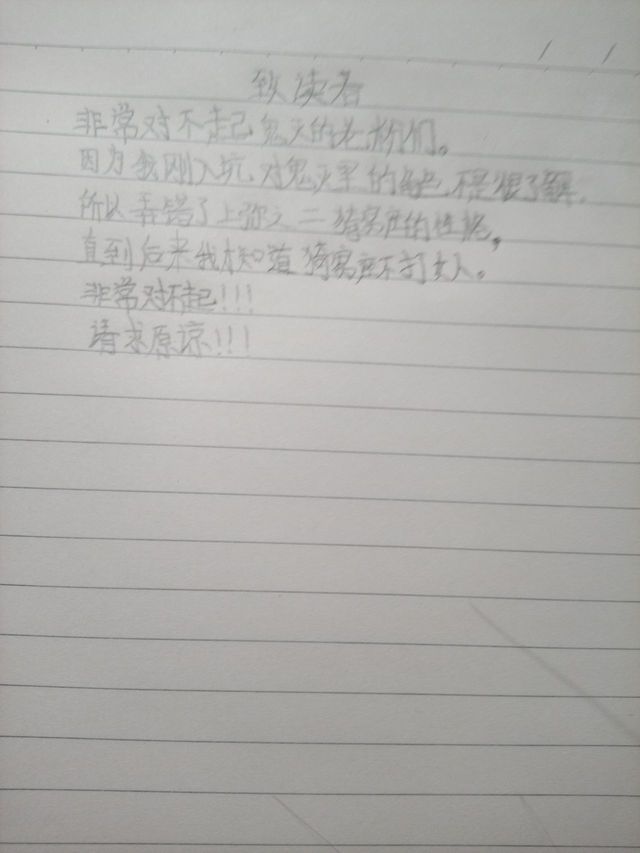 致读者
非常对不起鬼灭的老粉们。
因为我刚入坑，对鬼灭里的角色不是很了解，
所以弄错了上弥之二猗窝座的性格，
直到后来我才知道猗窝座不打女人。
非常对不起!!!
请求原谅!!!